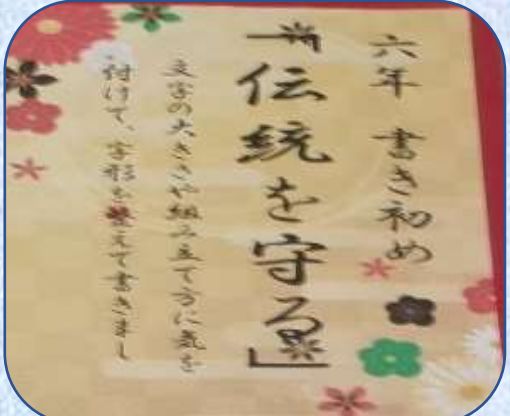 六年 書き初め
「伝統を守る」
文字の大きさや組み立て方に気を
付けて、字形を整えて書きまし